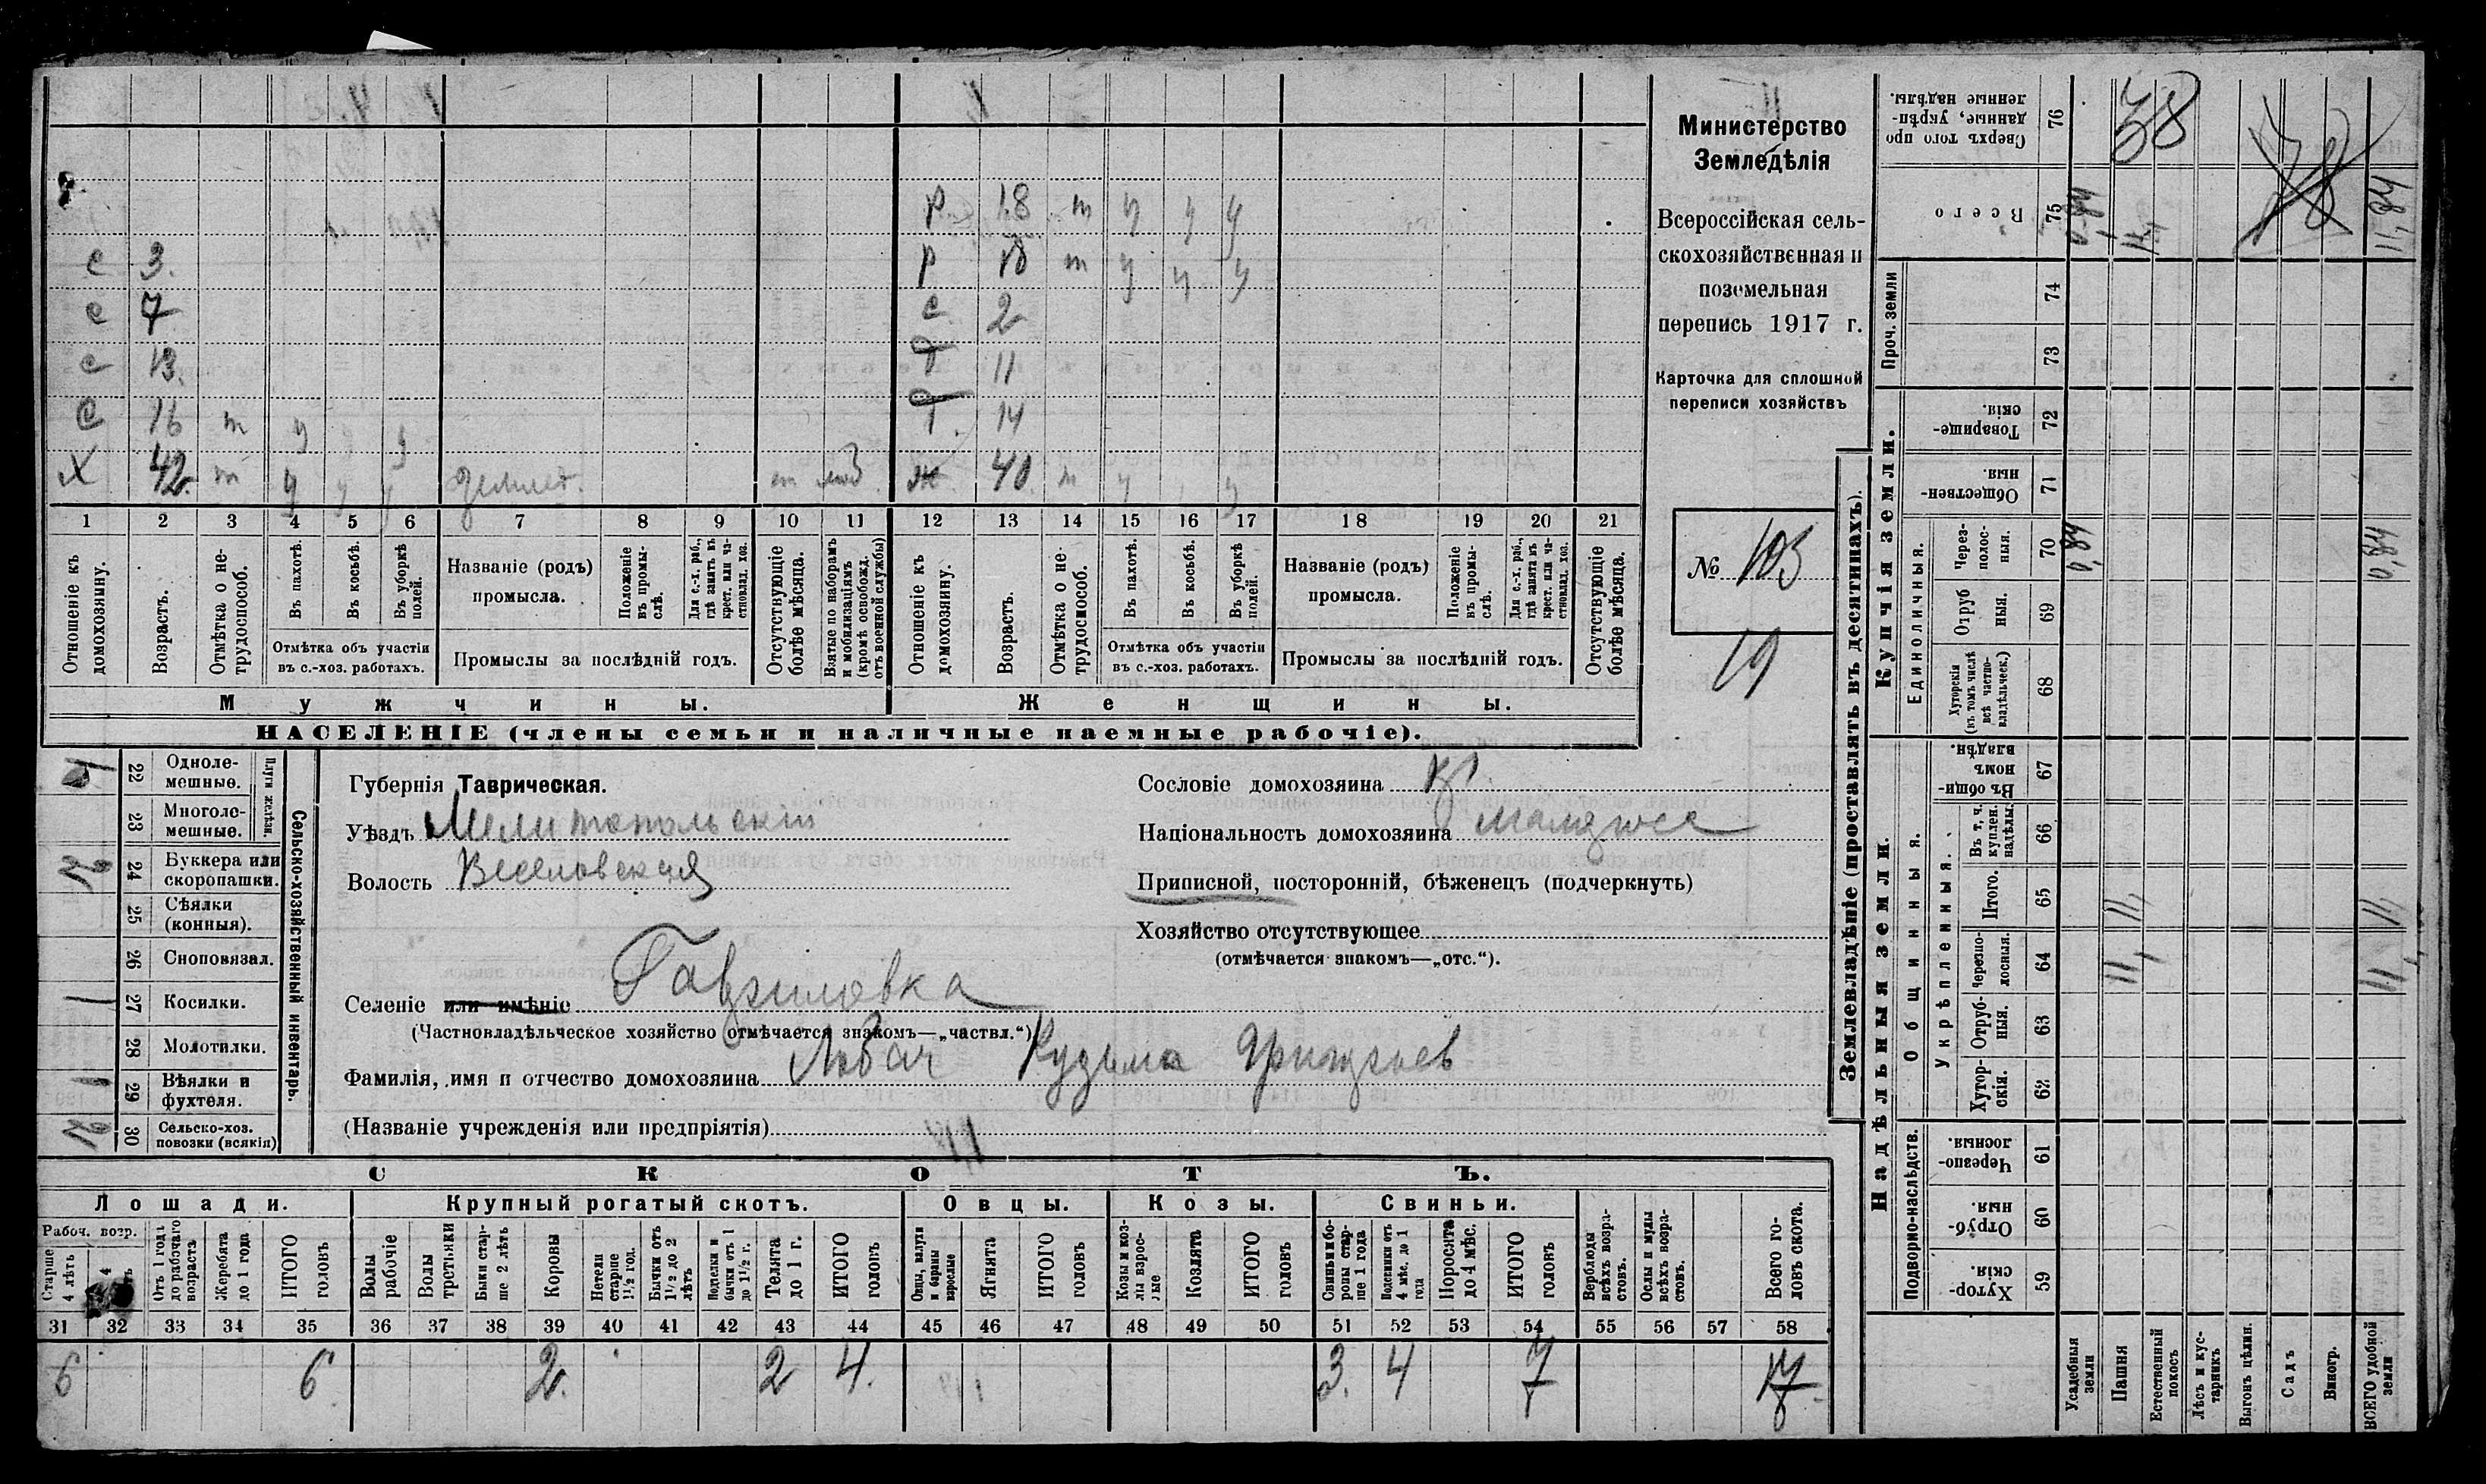 р. 18 т у у у
с 3. р 18 т у у у
с 7 с 2
с 13. Т 11
с 16 т у у у Т. 14
Х 42. т у у у землед. т моб. ж 40. т у у
1 2 3 4 5 6 7 8 9 10 11 12 13 14 15 16 17 18 19 20 21
Отношеніе къ домохозяину.
Возрастъ.
Отмѣтка о нетрудоспособ.
Въ пахотѣ.
Въ косьбѣ.
Въ уборкѣ полей.
Отмѣтка объ участіи въ с.-хоз. работахъ.
Названіе (родъ) промысла.
Положеніе въ промыслѣ.
Для с.-х. раб., гдѣ занятъ въ крест. или частновлад. хоз.
Промыслы за послѣдній годъ.
Отсутствующіе болѣе мѣсяца.
Взятые по наборамъ и мобилизаціямъ (кромѣ освобожд. отъ военной службы)
Отношеніе къ домохозяину.
Возрастъ.
Отмѣтка о нетрудоспособ.
Въ пахотѣ.
Въ косьбѣ.
Въ уборкѣ полей.
Отмѣтка объ участіи въ с.-хоз. работахъ.
Названіе (родъ) промысла.
Положеніе въ промыслѣ.
Для с.-х. раб., гдѣ занята въ крест. или частновлад. хоз.
Промыслы за послѣдній годъ.
Отсутствующіе болѣе мѣсяца.
Мужчины. Женщины.
НАСЕЛЕНІЕ (члены семьи и наличные наемные рабочіе).
Министерство
Земледѣлія
Всероссійская сель-
скохозяйственная и
поземельная
перепись 1917 г.
Карточка для сплошной
переписи хозяйствъ
№ 103
19
Сельско-хозяйственный инвентарь.
Плуги желѣзн.
22 Одноле-
мешные.
23 Многоле-
мешные.
24 Буккера или
скоропашки.
25 Сѣялки
(конныя).
26 Сноповязал.
1 27 Косилки.
28 Молотилки.
1 29 Вѣялки и
фухтеля.
30 Сельско-хоз.
повозки (всякія)
Губернія Таврическая.
Уѣздъ Мелитопольскій
Волость Веселовская
Селеніе или имѣніе Гавриловка
(Частновладѣльческое хозяйство отмѣчается знакомъ—„частвл.“)
Фамилія, имя и отчество домохозяина Лобач Кузьма Григорьев
(Названіе учрежденія или предпріятія)
Сословіе домохозяина кр.
Національность домохозяина малоросс
Приписной, посторонній, бѣженецъ (подчеркнуть)
Хозяйство отсутствующее
(отмѣчается знакомъ—„отс.“).
СКОТЪ.
Лошади. Крупный рогатый скотъ. Овцы. Козы. Свиньи.
Рабоч. возр.
Старше 4 лѣтъ
Отъ 1 года до рабочаго возраста
Жеребята до 1 года
ИТОГО головъ
Волы рабочіе
Волы третьяки
Быки старше 2 лѣтъ
Коровы
Нетели старше 1½ год.
Бычки отъ 1½ до 2 лѣтъ
Подтелки и бычки отъ 1 до 1½ г.
Телята до 1 г.
ИТОГО головъ
Овцы, валухи и бараны взрослые
Ягнята
ИТОГО головъ
Козы и козлы взрослые
Козлята
ИТОГО головъ
Свиньи и боровы старше 1 года
Подсвинки отъ 4 мѣс. до 1 года
Поросята до 4 мѣс.
ИТОГО головъ
Верблюды всѣхъ возрастовъ.
Ослы и мулы всѣхъ возрастовъ.
Всего головъ скота.
31 32 33 34 35 36 37 38 39 40 41 42 43 44 45 46 47 48 49 50 51 52 53 54 55 56 57 58
6 6 2. 2 4. 3. 4 7 17
Землевладѣніе (проставлять въ десятинахъ).
Надѣльныя земли. Купчія земли.
Подворно-наслѣдств.
Общинныя.
Укрѣпленныя.
Единоличныя.
Проч. земли
76 Сверхъ того проданные, укрѣпленные надѣлы.
75 Всего 0,84 11, 11,84
74
73
72 Товарищескія.
71 Общественныя.
70 Черезполосныя. 0,84 0,84
69 Отрубныя.
68 Хуторскія (въ томъ числѣ всѣ частновладѣльческ.)
67 Въ общинномъ владѣн.
66 Въ т. ч. куплен. надѣлы.
65 Итого. 11, 11,
64 Черезполосныя. 11, 11,
63 Отрубныя.
62 Хуторскія.
61 Черезполосныя.
60 Отрубныя.
59 Хуторскія.
Усадебныя земли
Пашня
Естественный покосъ
Лѣсъ и кустарникъ
Выгонъ цѣлин.
Садъ
Виногр.
ВСЕГО удобной земли
38